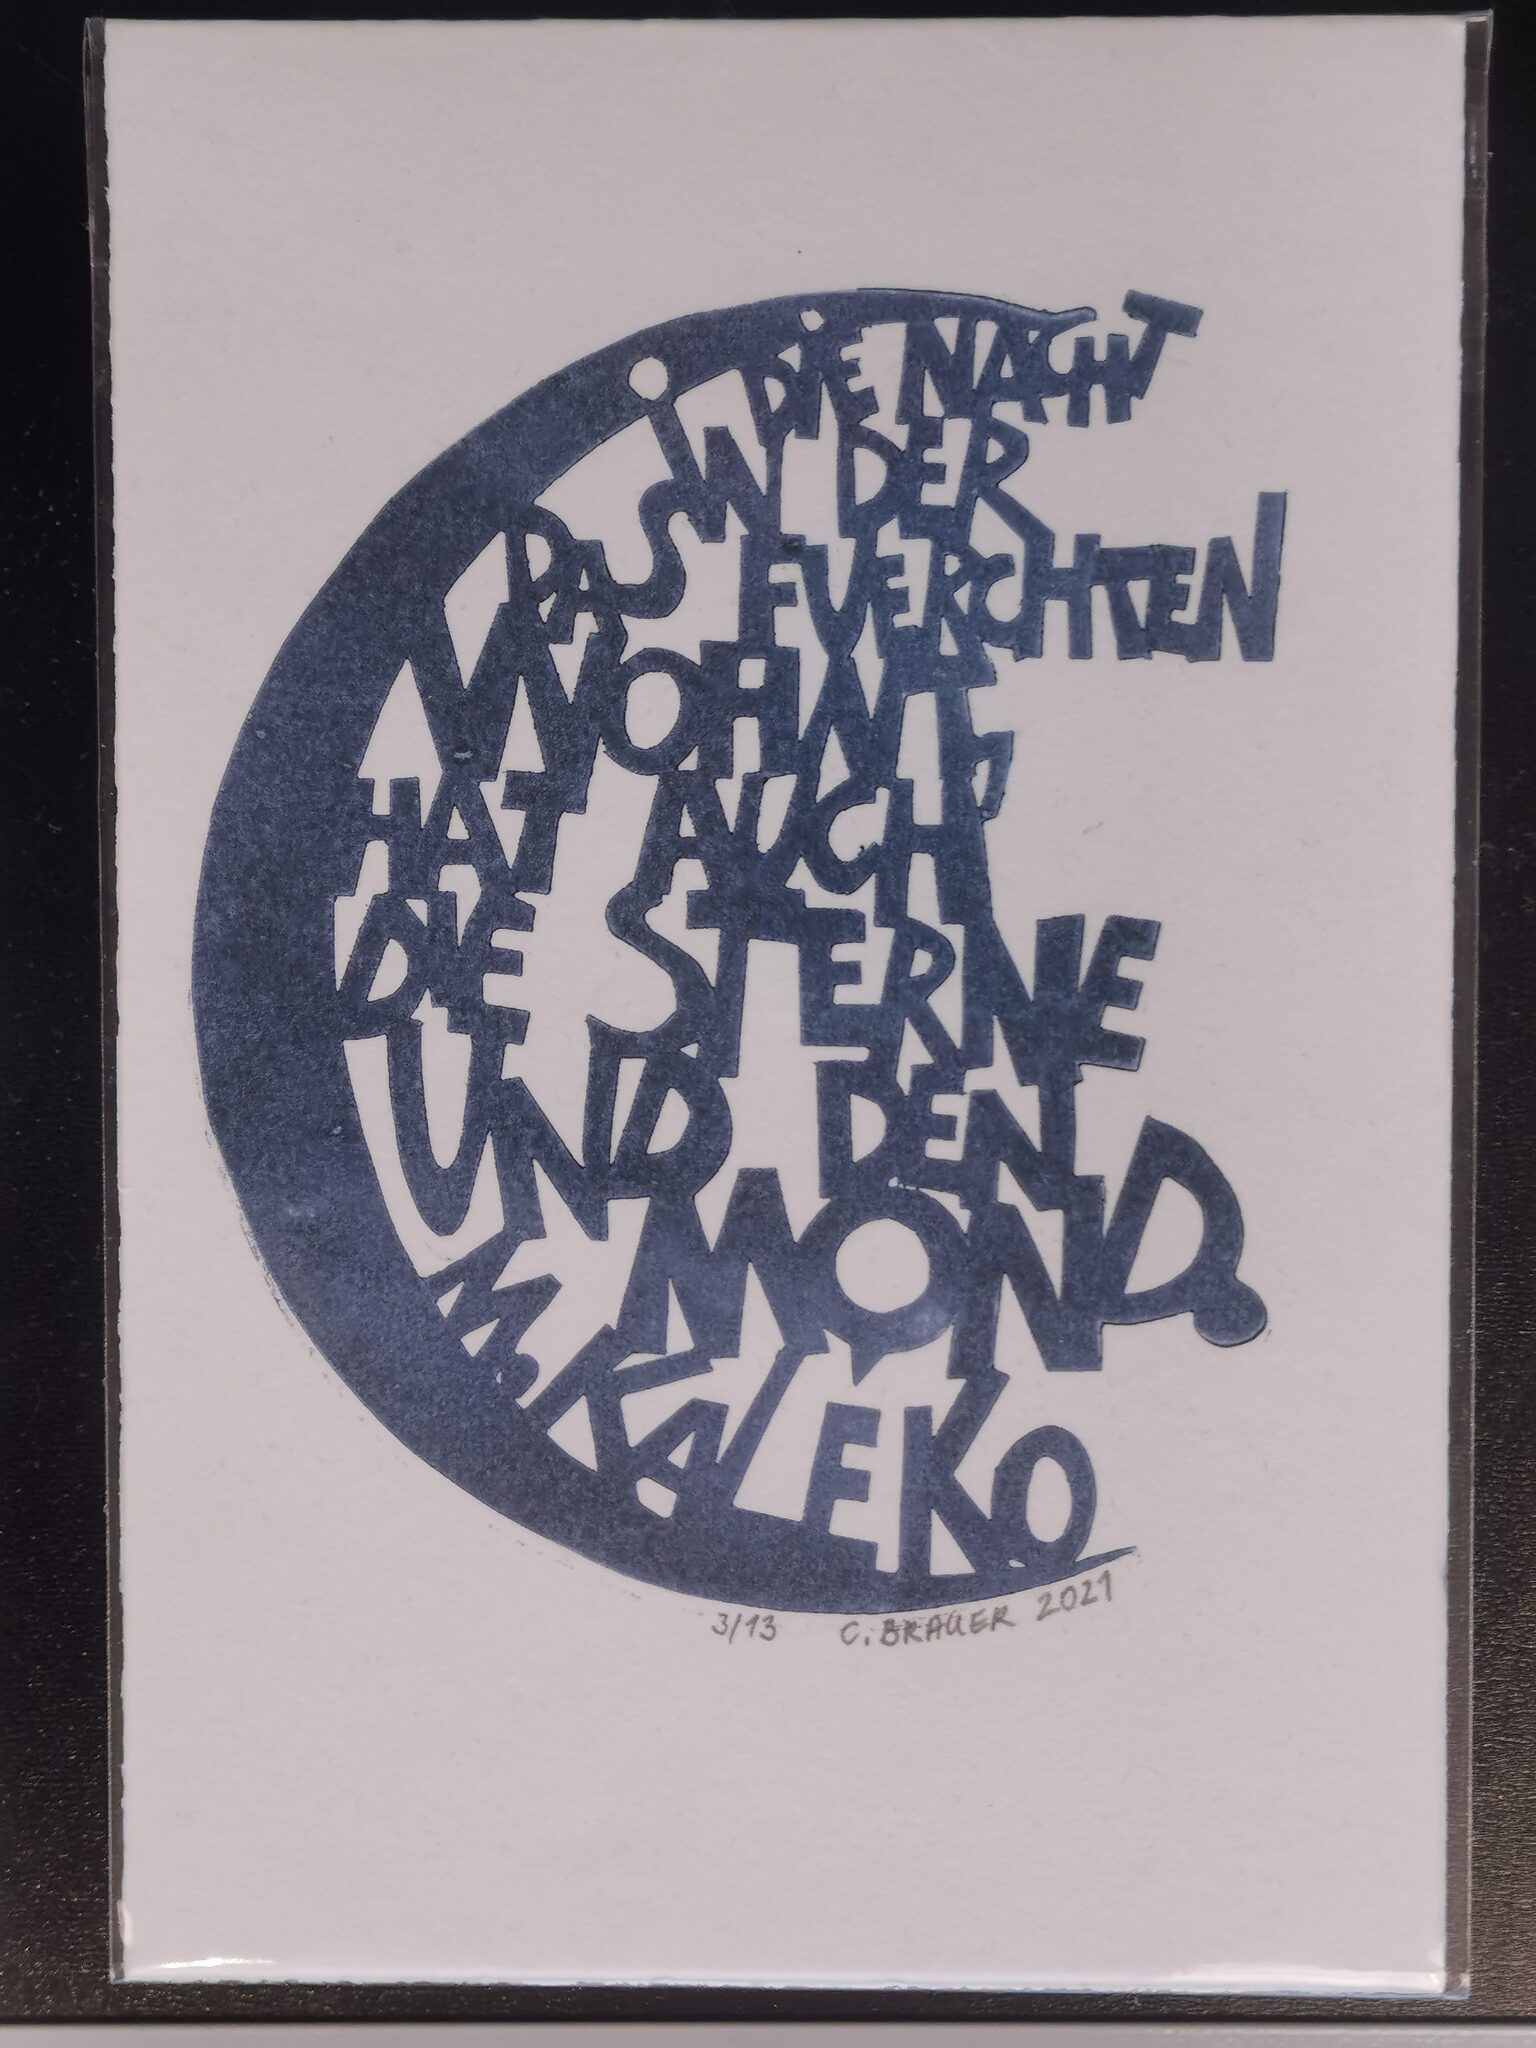 DiE NACHT
iN DER
DAS FUERCHTEN
WOHNT,
HAT AUCH
DIE STERNE
UND DEN
MOND.
M. KALEKO
3/13 C. BRAUER 2021